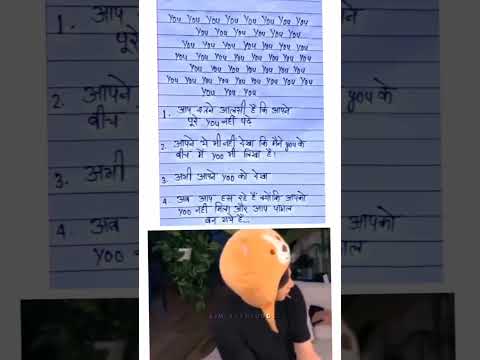 You You You You You You You You
You You You You You You
You You You You You You You
You You You You You You You You
You You You You You You
You You You You You You You You
You You You
1. आप इतने आलसी है कि आपने
पूरे you नहीं पढे
2. आपने ये भी नहीं देखा कि मैंने you के
बीच में yoo भी लिखा है।
3. अभी आपने yoo को देखा
4. अब आप हस रहे हैं क्योंकि आपको
yoo नहीं मिला और आप पागल
बन गये हैं...